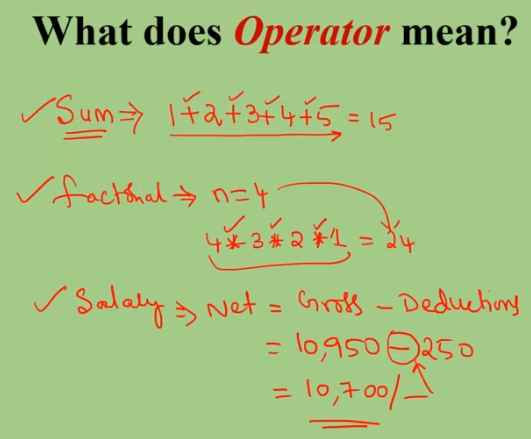 What does Operator mean?
✓ Sum ⇒ 1+2+3+4+5 = 15
✓ factorial ⇒ n=4
4*3*2*1 = 24
✓ Salary ⇒ Net = Gross - Deductions
= 10,950 - 250
= 10,700/-